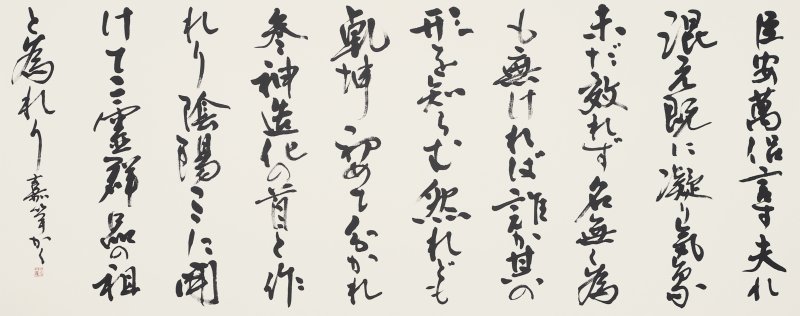 臣安萬侶言す夫れ
混元既に凝り氣象
未だ效れず名無く為
も無ければ誰か其の
形を知らむ然れども
乾坤初めて分かれ
参神造化の首と作
れり陰陽ここに開
けて二靈群品の祖
と為れり 嘉軍かく